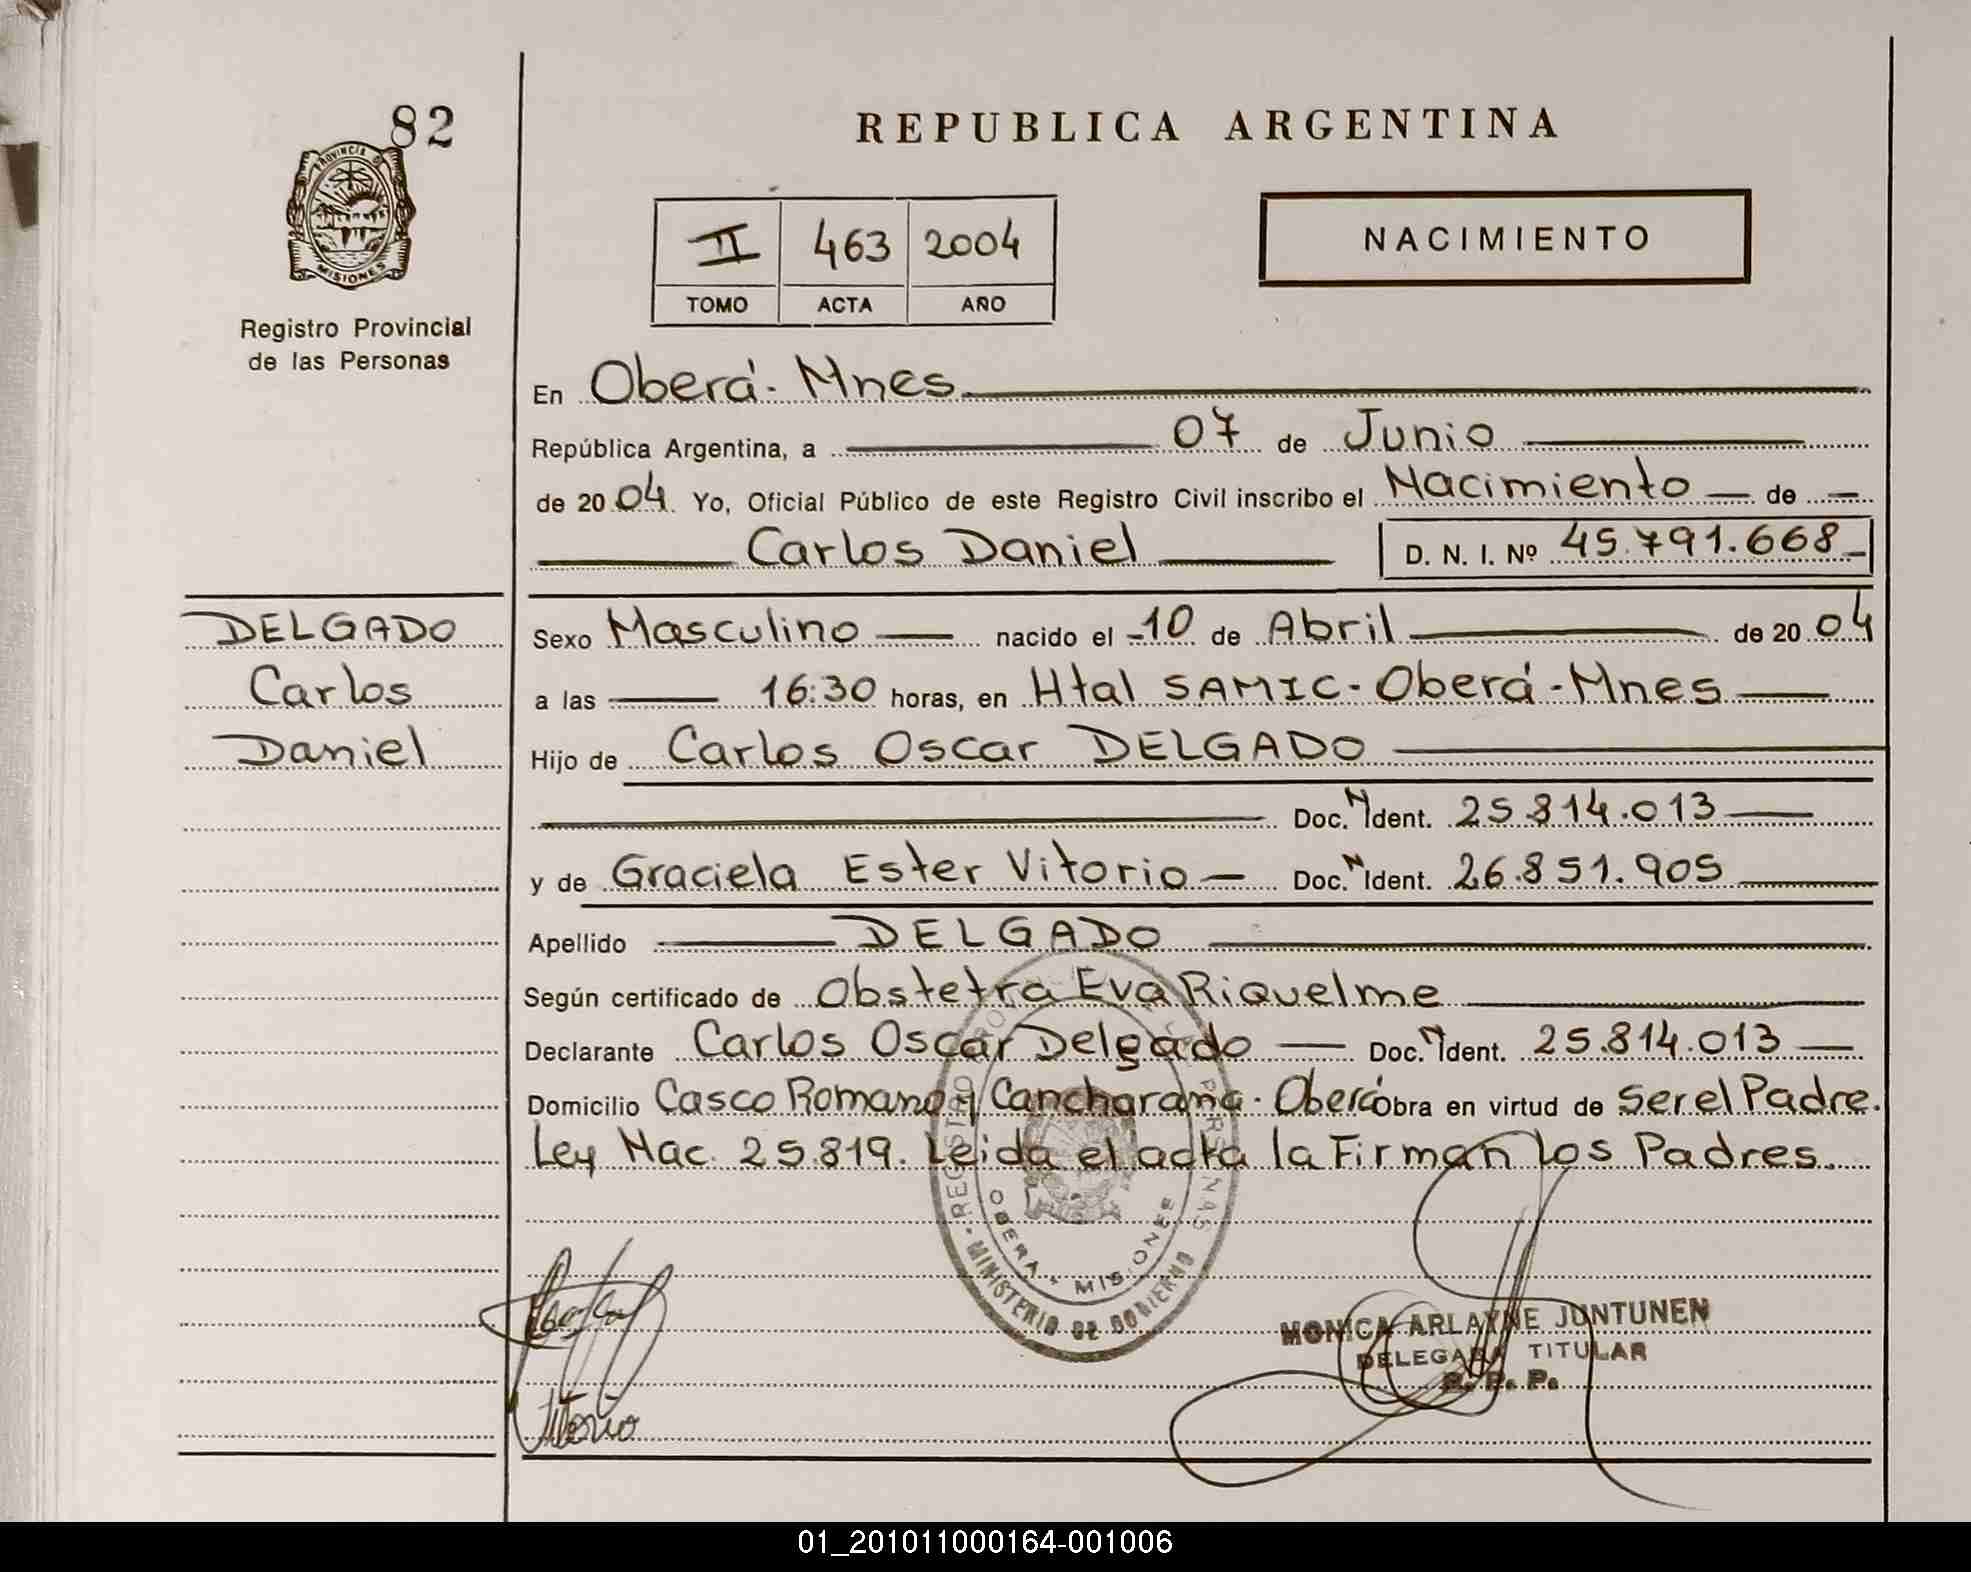 82
PROVINCIA DE
MISIONES
Registro Provincial
de las Personas
DELGADO
Carlos
Daniel
REPUBLICA ARGENTINA
II 463 2004
TOMO ACTA AÑO
NACIMIENTO
En Oberá - Mnes
República Argentina, a 07 de Junio
de 2004 Yo, Oficial Público de este Registro Civil inscribo el Nacimiento de
Carlos Daniel D. N. I. Nº 45.791.668
Sexo Masculino nacido el 10 de Abril de 2004
a las 16:30 horas, en Htal SAMIC - Oberá - Mnes
Hijo de Carlos Oscar DELGADO
Doc. N Ident. 25.814.013
y de Graciela Ester Vitorio Doc. N Ident. 26.851.905
Apellido DELGADO
Según certificado de Obstetra Eva Riquelme
Declarante Carlos Oscar Delgado Doc. N Ident. 25.814.013
Domicilio Casco Romano y Cancharana - Oberá obra en virtud de ser el Padre.
Ley Nac. 25.819. Leida el acta la Firman los Padres.
REGISTRO PROV. DE LAS PERSONAS
OBERA - MISIONES
MINISTERIO DE GOBIERNO
Vitorio
MONICA ARLAYNE JUNTUNEN
DELEGADA TITULAR
R. P. P.
01_201011000164-001006